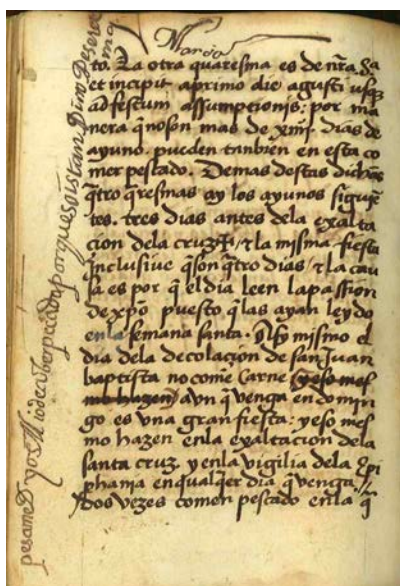 to. La otra quaresma es de nr̃a. Sa
et incipit aprimo die agusti usq̃
ad festum assumpcionis: por ma
nera q̃ noson mas de xiiij. dias de
ayuno. pueden tanbien en esta co
mer pescado. Demas destas dichas
q̃tro q̃resmas ay los ayunos siguiẽ
tes. tres dias antes dela exalta
cion dela cruz ✝, τ la misma fiesta
Inclusiue q̃ son q̃tro dias, τ la cau
sa es por q̃ el dia leen la passion
de xp̃o puesto q̃ las ayan leydo
enla semana santa. Assy mismo el
dia dela decolacion de san Juan
baptista no comẽ Carne (yeso mes
mo hazen) Aun q̃ venga en domin
go es una gran fiesta: yeso mes
mo hazen enla exaltacion dela
santa cruz, y enla vigilia dela Epi
phania en qualq̃er dia q̃ venga,
dos vezes comen pescado enla q̃
pesame Dyos Mio de aber